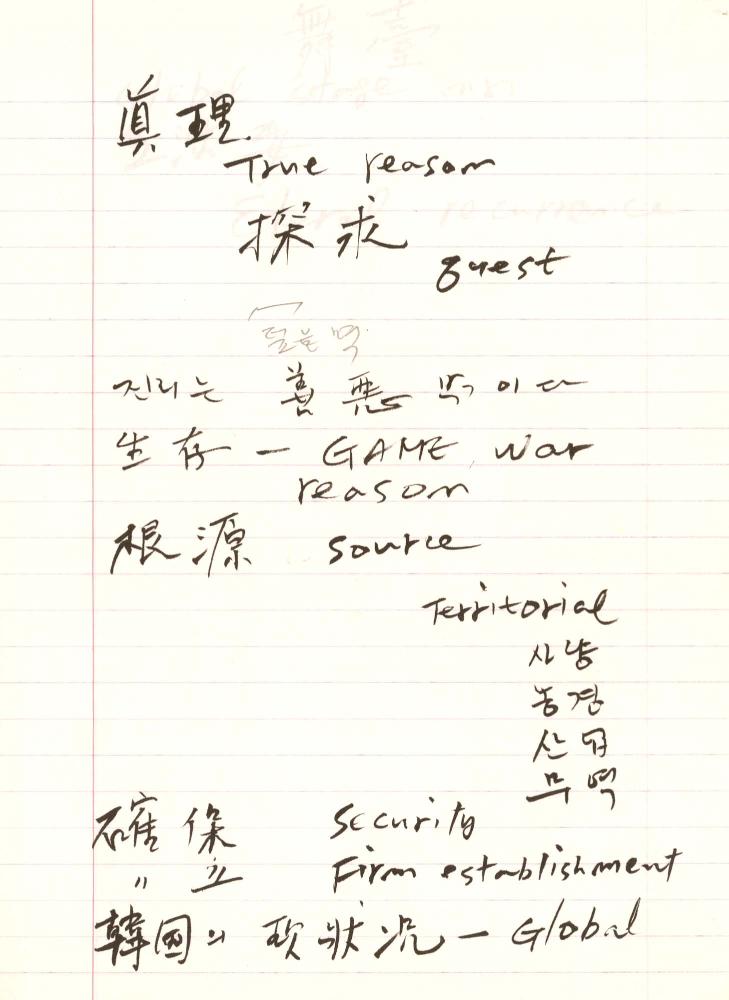 眞理
True reason
探求
quest
진리는 善惡 밖이다
生存 - GAME, war
reason
根源 source
Territorial
사냥
농경
산업
무역
確保 Security
〃 立 Firm establishment
韓國의 現狀況 - Global